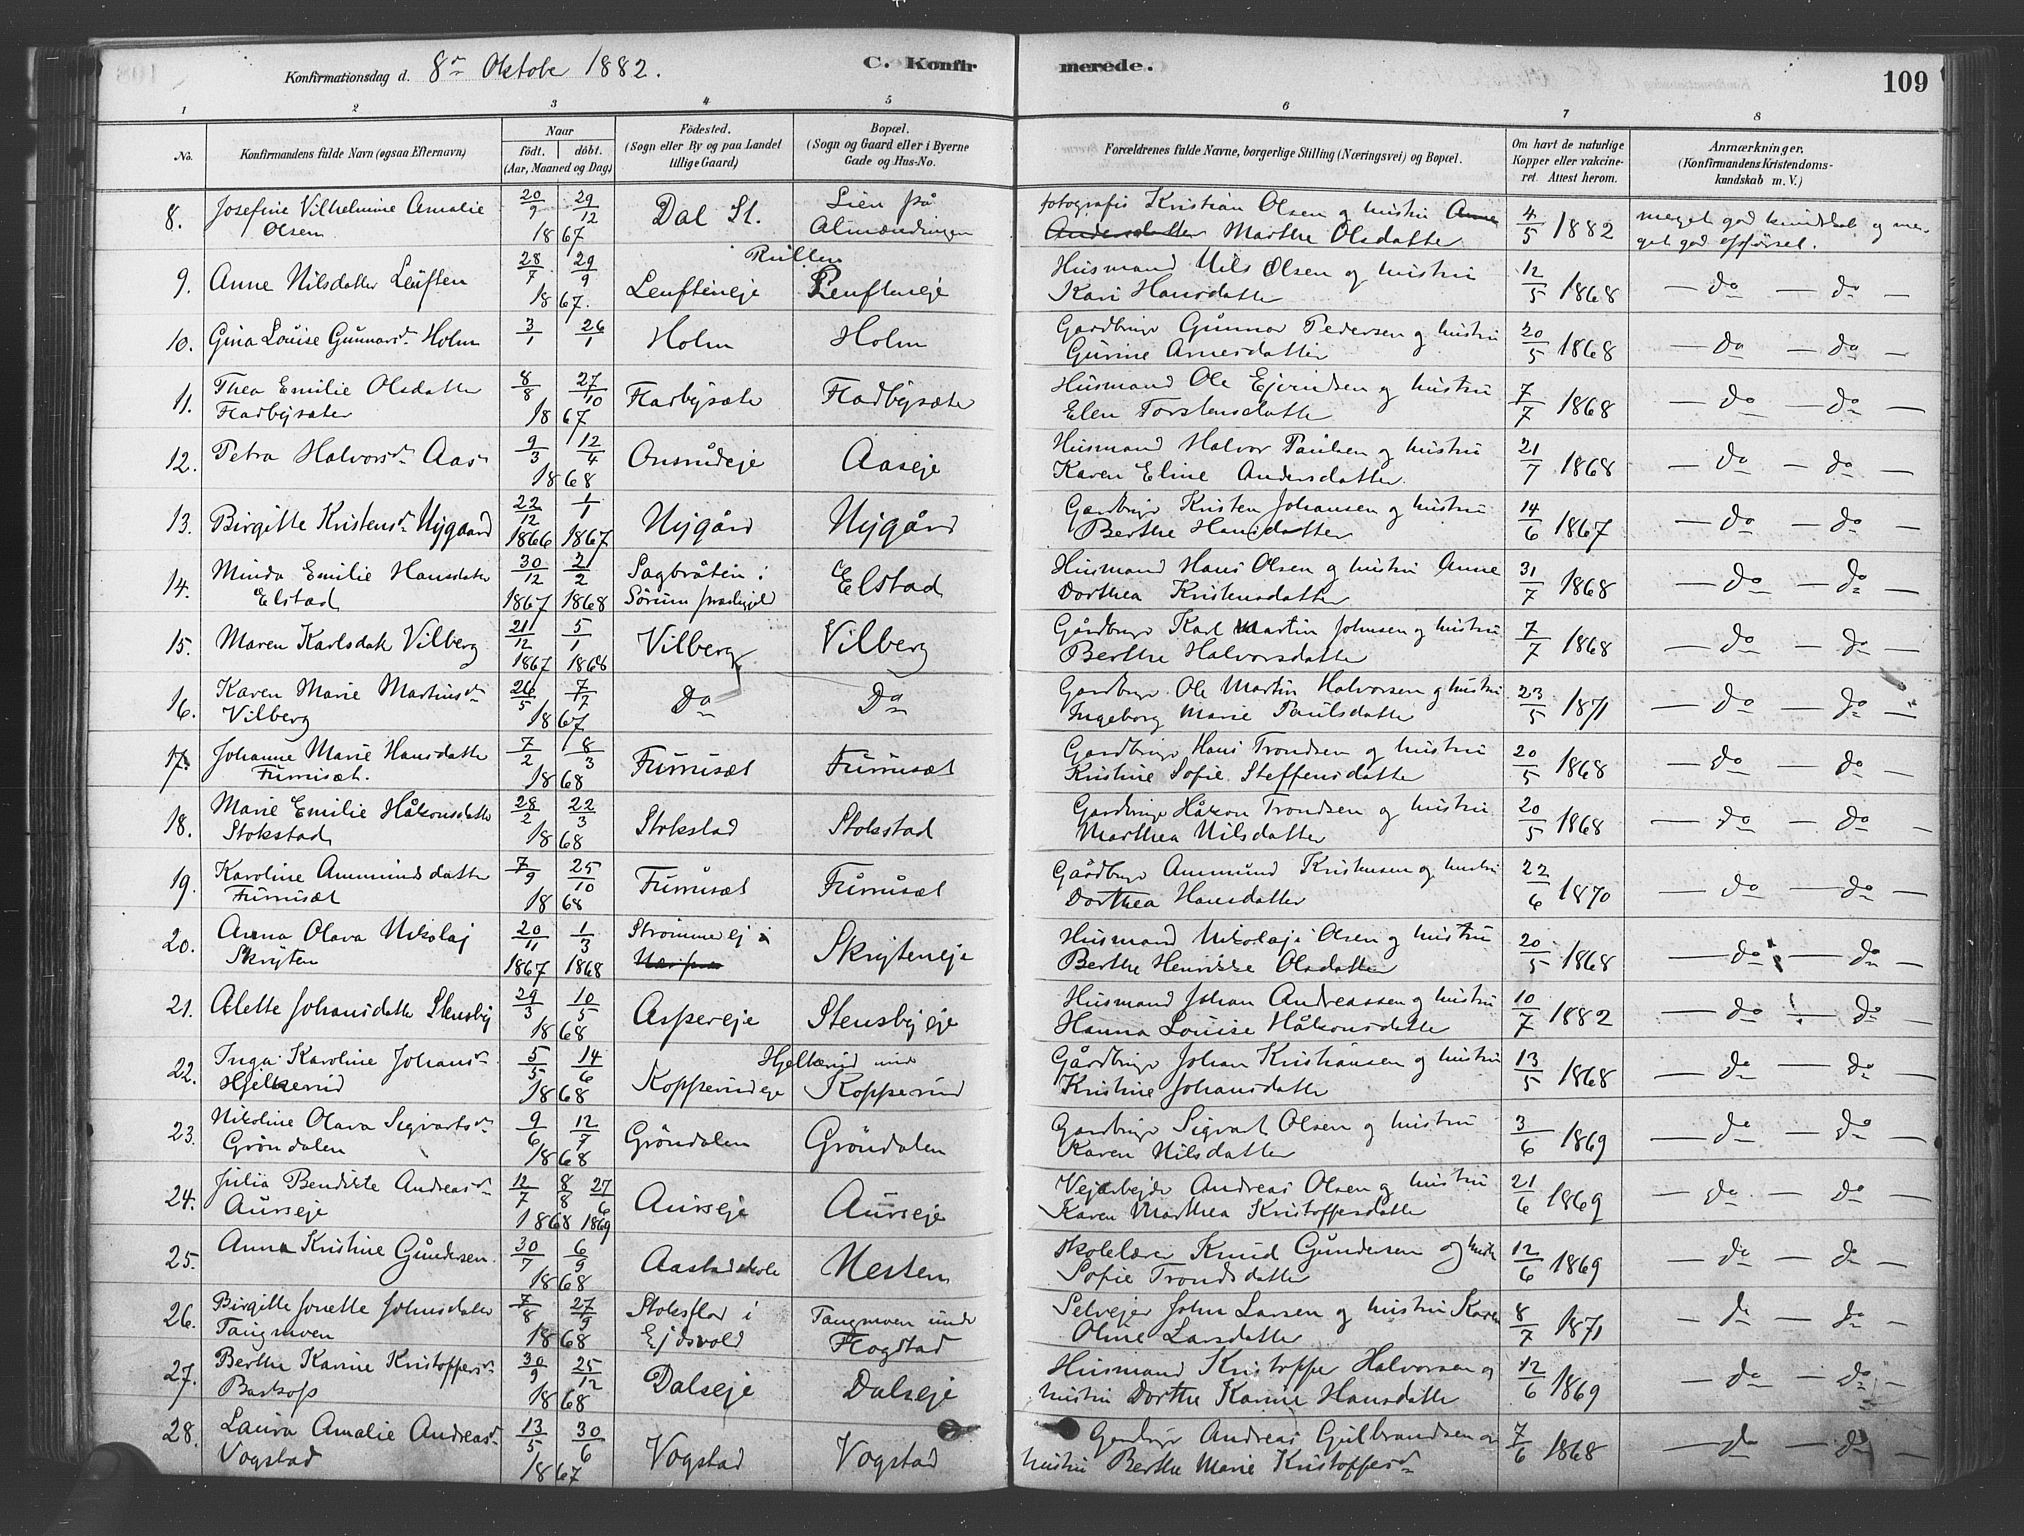 Konfirmationsdag d. 8de Oktobe 1882. C. Konfirmerede. 109
1 2 3 4 5 6 7 8
No. Konfirmandens fulde Navn (ogsaa Efternavn) Naar født. døbt. (Aar, Maaned og Dag) Fødested. (Sogn eller By og paa Landet tillige Gaard) Bopæl. (Sogn og Gaard eller i Byerne Gade og Hus-No. Forældrenes fulde Navne, borgerlige Stilling (Næringsvei) og Bopæl. Om havt de naturlige Kopper eller vakcineret. Attest herom. Anmærkninger. (Konfirmandens Kristendomskundskab m. V.)
8. Josefine Vilhelmine Amalie Olsen 20/9 29/12 1867 Dal St. Lien på Almændingen fotografis Kristian Olsen og hustru Anne Andersdatter Marthe Olsdatter 4/5 1882 meget god kundskab og meget god opførsel.
9. Anne Nilsdatter Leuften 28/7 29/9 1867. Leufteneje Rullen Leufteneje Husmand Nils Olsen og hustru Kari Hansdatter 12/5 1868 — do — do —
10. Gina Louise Gunnarsdr Holm 3/1 26/1 Holm Holm Gardbruger Gunnar Pedersen og hustru Gurine Arnesdatter 20/5 1868 — do — do —
11. Thea Emilie Olsdatter Fladbysæter 8/8 27/10 1867 Fladbysæte Fladbysæte Husmand Ole Ejvindsen og hustru Elen Torstensdatter 7/7 1868 — do — do —
12. Petra Halvorsdr Aas 9/3 12/4 1868 Onsrudeje Aaseje Husmand Halvor Paulsen og hustru Karen Eline Andersdatter. 21/7 1868 — do — do —
13. Birgitte Kristensdr Nygaard 22/12 1866 1/1 1867 Nygård Nygård Gardbruger Kristen Johansen og hustru Berthe Hansdatter 14/6 1867 — do — do —
14. Minda Emilie Hansdatter Elstad 30/12 1867 2/2 1868 Sagbråten i Sörum præstegjeld Elstad Husmand Hans Olsen og hustru Anne Dorthea Kristensdatter 31/7 1868 — do — do
15. Maren Karlsdatt Vilberg 21/12 1867 5/1 1868 Vilberg Vilberg Gårdbruger Karl Martin Johnsen og hustru Berthe Halvorsdatter 7/7 1868 — do — do —
16. Karen Marie Martinsdr Vilberg 26/5 7/7 1867 Do Do Gardbruger Ole Martin Halvorsen og hustru Ingeborg Marie Paulsdatter 23/5 1871 — do — do —
17. Johanne Marie Hansdatter Furruset. 7/2 8/3 1868 Furruset Furruset Gardbruger Hans Trondsen og hustru Kristine Sofie Steffensdatter 20/5 1868 — do — do —
18. Marie Emilie Håkonsdatter Stokstad 28/2 22/3 1868 Stokstad Stokstad Gardbruger Håkon Trondsen og hustru Marthea Nilsdatter 20/5 1868 — do — do —
19. Karoline Ammundsdatter Furruset 7/9 25/10 1868 Furruset Furruset Gårdbruger Ammund Kristensen og hustru Dorthea Hansdatter 22/6 1870 — do — do —
20. Anna Olava Nikolaj Skrijten 20/11 1867 1/3 1868 Strommeej i Skrijteneje Husmand Nikolaj Olsen og hustru Berthe Henrikke Olsdatter 20/5 1868 — do — do —
21. Alette Johansdatter Stensby 29/3 10/5 1868 Aspereje Stensbyeje Husmand Johan Andreassen og hustru Hanna Louise Håkonsdatter 10/7 1882 — do — do —
22. Inga Karoline Johansdr Hjelkerud 5/5 14/6 1868 Kopperudeje Hjelkerud under Kopperud Gårdbruger Johan Kristiansen og hustru Kristine Johansdatter 13/5 1868 — do — do —
23. Nikoline Olava Sigvartsdr Gröndalen 9/6 12/7 1868 Gröndalen Gröndalen Gardbruger Sigvart Olsen og hustru Karen Nilsdatter 3/6 1869 — do — do —
24. Julia Bendikte Andreasdr Aurseje 12/7 8/8 1868 27/6 1869 Aurseje Aurseje Vejarbejde Andreas Olsen og hustru Karen Marthea Kristoffersdatter 21/6 1869 — do — do —
25. Anna Kristine Gundersen. 30/7 6/9 1868 Aastadskole Nesten Skolelærer Knud Gundersen og hustru Sofie Trondsdatter 12/6 1869 — do — do —
26. Birgitte Jonette Johnsdatter Tangmoen 7/8 27/9 1868 Stoksflor i Ejdsvold Tangmoen under Flogstad Selvejer John Larsen og hustru Karen Oline Larsdatter 8/7 1871 — do — do —
27. Berthe Karine Kristoffersdr Baskops 30/9 25/12 1868 Dalseje Dalseje Husmand Kristoffer Halvorsen og hustru Dorthe Karine Hansdatter 12/6 1869 — do — do
28. Laura Amalie Andreasdr Vogstad 13/5 30/6 1867 Vogstad Vogstad Gardbruger Andreas Gulbrandsen og hustru Berthe Marie Kristoffersdr 7/6 1868 — do — do —